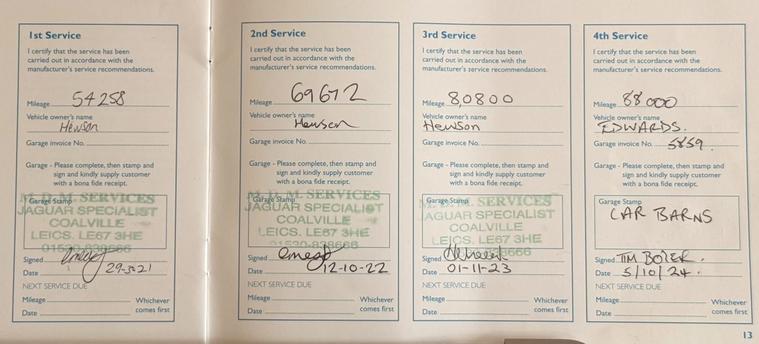 1st Service
I certify that the service has been
carried out in accordance with the
manufacturer's service recommendations.
Mileage 54258
Vehicle owner's name
Hewson
Garage invoice No.
Garage - Please complete, then stamp
and sign and kindly supply customer
with a bona fide receipt.
M.D.M. SERVICES
Garage Stamp
JAGUAR SPECIALIST
COALVILLE
LEICS. LE67 3HE
01530-838666
Signed
Date 29-3-21
NEXT SERVICE DUE
Mileage Whichever
Date comes first
2nd Service
I certify that the service has been
carried out in accordance with the
manufacturer's service recommendations.
Mileage 69672
Vehicle owner's name
Hewson
Garage invoice No.
Garage - Please complete, then stamp
and sign and kindly supply customer
with a bona fide receipt.
M.D.M. SERVICES
Garage Stamp
JAGUAR SPECIALIST
COALVILLE
LEICS. LE67 3HE
01530-838666
Signed
Date 12-10-22
NEXT SERVICE DUE
Mileage Whichever
Date comes first
3rd Service
I certify that the service has been
carried out in accordance with the
manufacturer's service recommendations.
Mileage 8,0800
Vehicle owner's name
Hewson
Garage invoice No.
Garage - Please complete, then stamp
and sign and kindly supply customer
with a bona fide receipt.
M.D.M. SERVICES
Garage Stamp
JAGUAR SPECIALIST
COALVILLE
LEICS. LE67 3HE
8666
Signed
Date 01-11-23
NEXT SERVICE DUE
Mileage Whichever
Date comes first
4th Service
I certify that the service has been
carried out in accordance with the
manufacturer's service recommendations.
Mileage 88000
Vehicle owner's name
EDWARDS.
Garage invoice No. 5859.
Garage - Please complete, then stamp
and sign and kindly supply customer
with a bona fide receipt.
Garage Stamp
CAR BARNS
Signed TIM
Date 5/10/24.
NEXT SERVICE DUE
Mileage Whichever
Date comes first
13